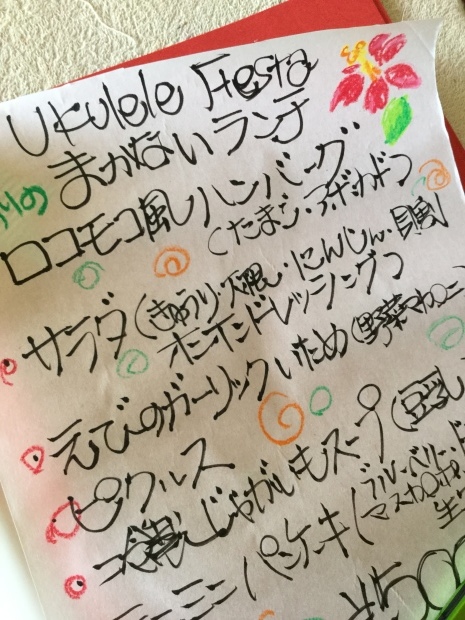 Ukulele Festa
まかないランチ
ロコモコ風ハンバーグ
(たまご・アボカド)
サラダ(きゅうり・大根・にんじん・
オニオンドレッシング)
えびのガーリックいため(野菜
ピクルス
じゃがいもスープ(豆乳
ミニパンケーキ(ブルーベリー
マスカルポ
生
¥500